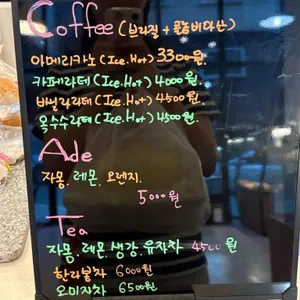 Coffee (브라질 + 콜롬비아산)
아메리카노 (Ice.Hot) 3300원.
카페라테 (Ice.Hot) 4000원.
바닐라라테 (Ice.Hot) 4500원.
옥수수라테 (Ice.Hot) 4500원.
Ade
자몽. 레몬. 오렌지.
5000원
Tea
자몽. 레몬. 생강. 유자차 4500원
한라봉차 6000원
오미자차 6500원